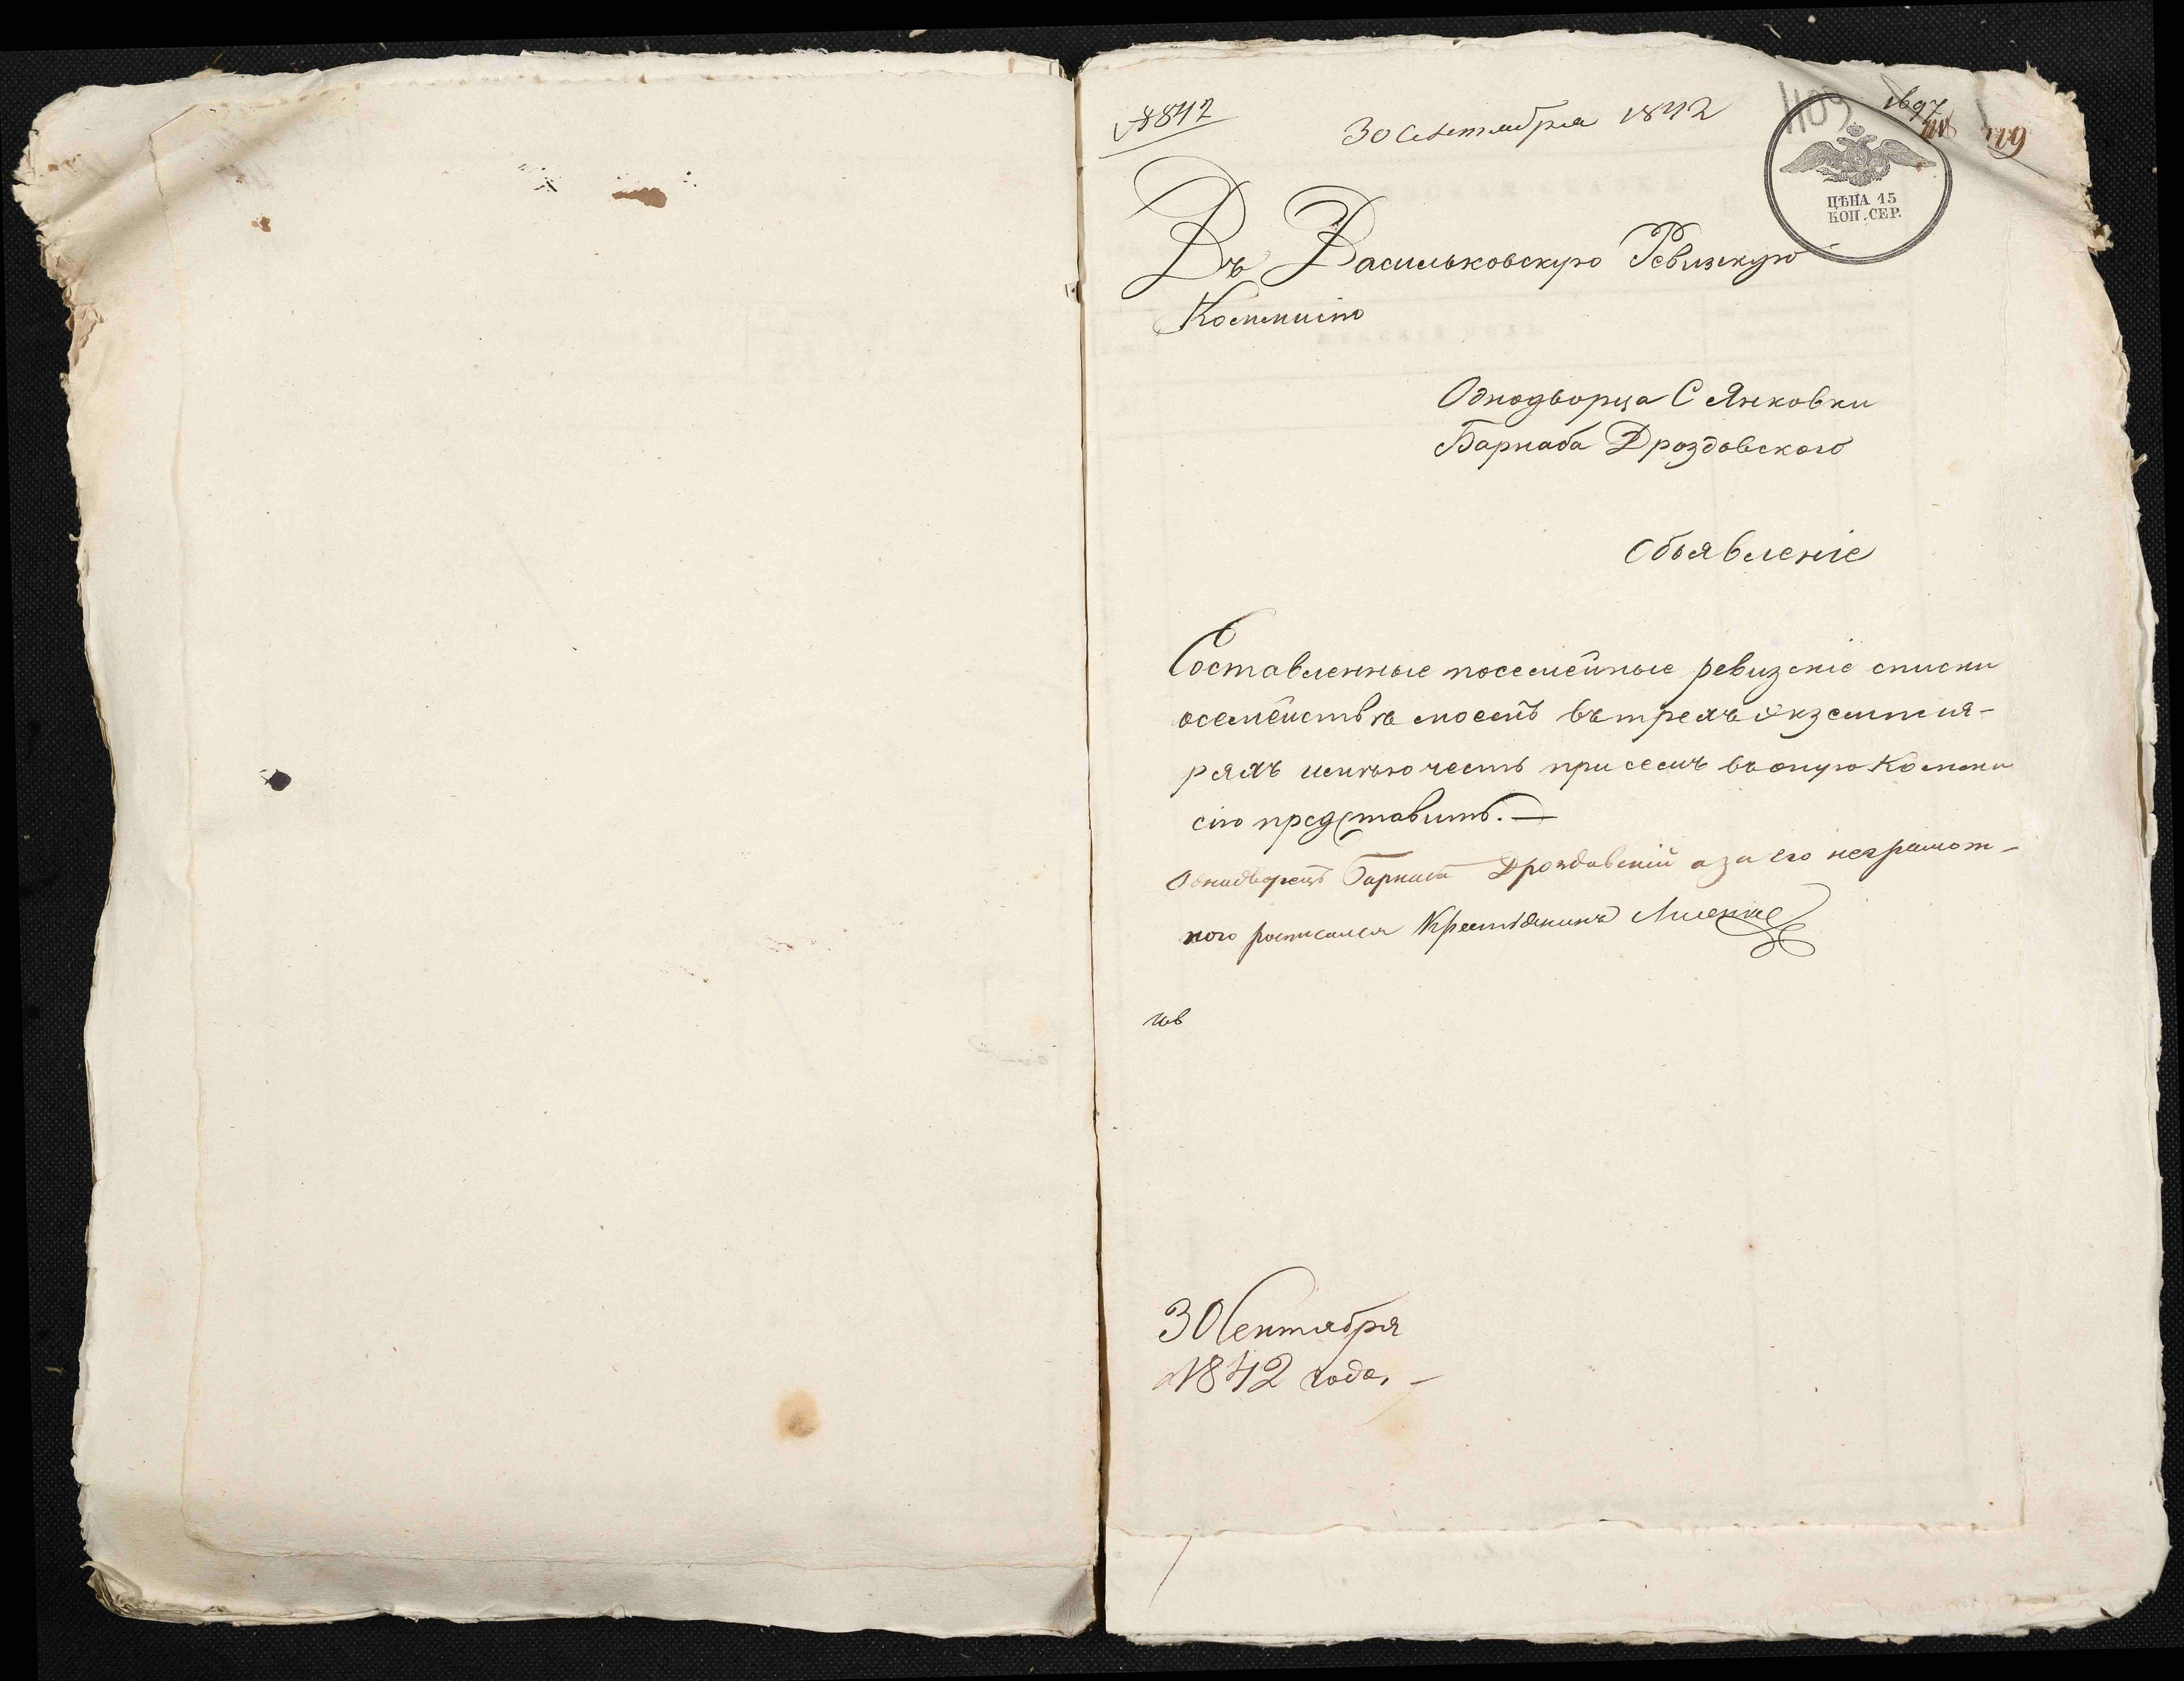 №842
30 Сентября 1842
1697
1109
119
ЦѢНА 15
КОП. СЕР.
Въ Васильковскую Ревизкую
Коммисію
Однодворца С Янковки
Барнаба Дроздовского
Объявленіе
Составленные посемейные ревизскіе списки
осемействѣ моемъ въ трехъ экземпля-
рахъ имѣю честь при семъ въ оную Комми
сію представить. —
Однодворецъ Барнаба Дроздовскій а за его неграмот-
ного росписался Крестьянинъ
30 Сентября
1842 года. —